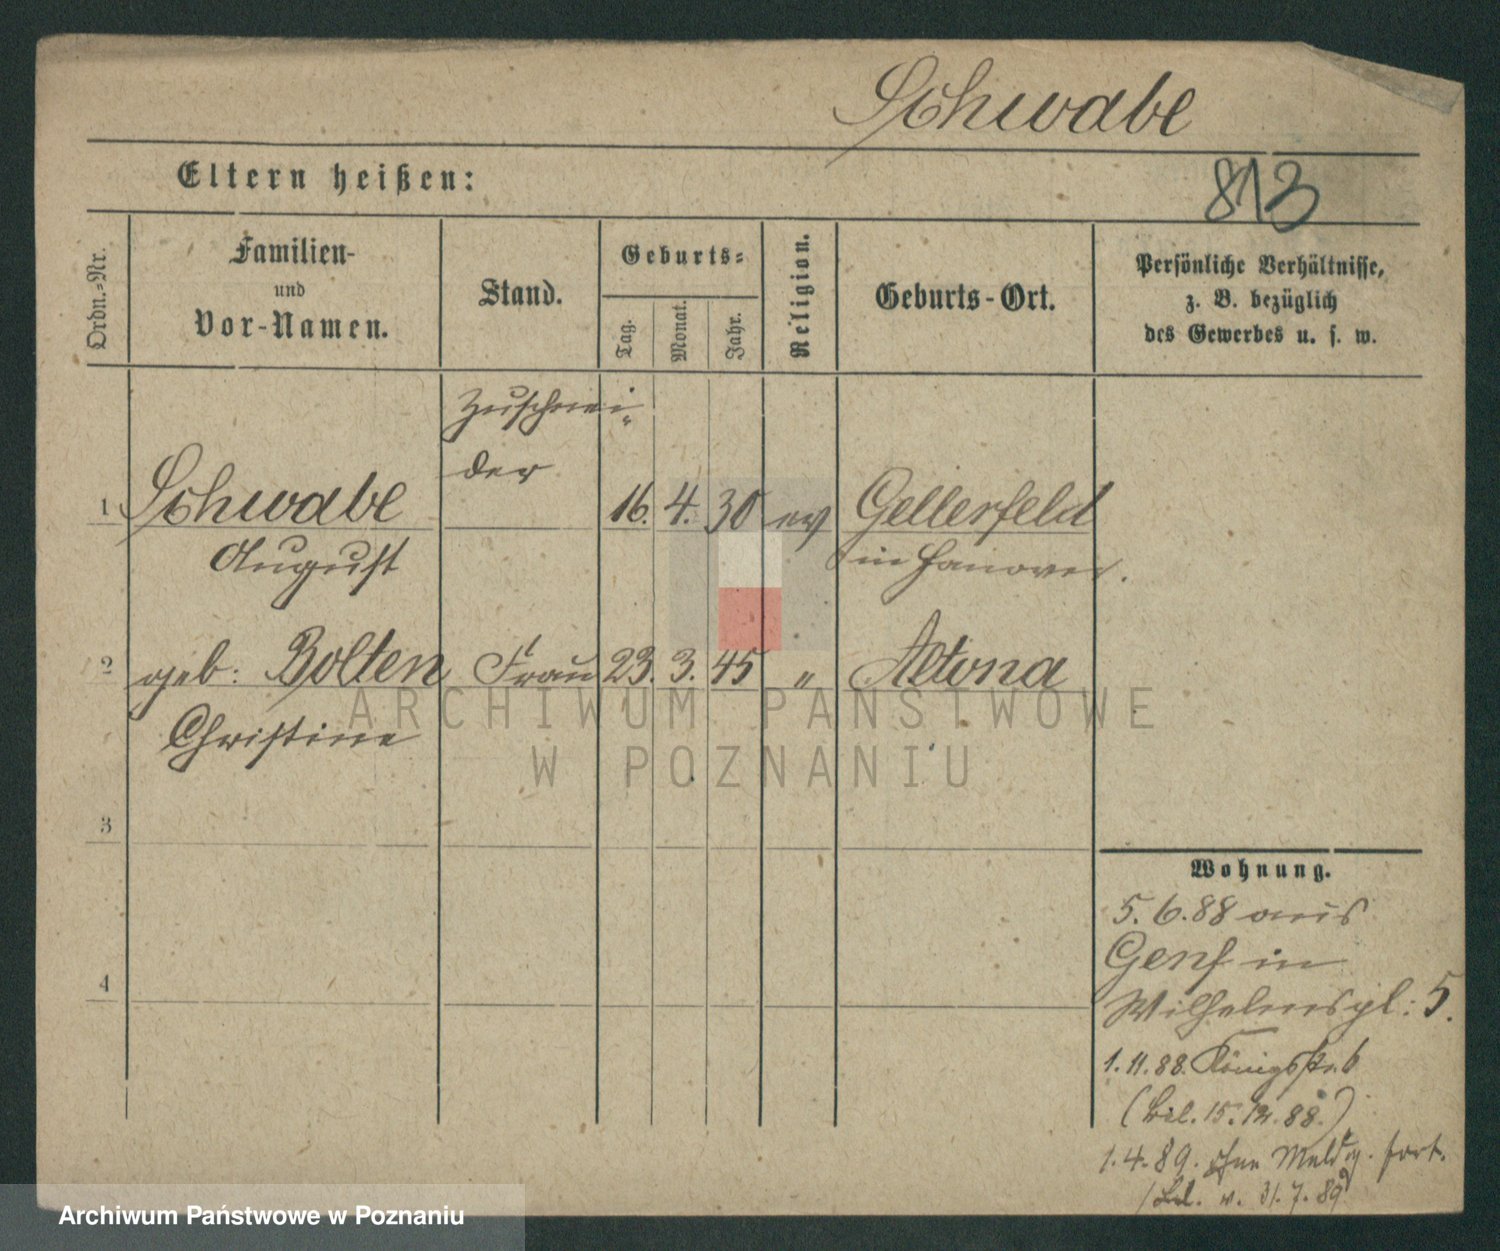 Schwabe
Eltern heißen:
813
Ordn.-Nr.
Familien-
und
Vor-Namen.
Stand.
Geburts-
Tag.
Monat.
Jahr.
Religion.
Geburts-Ort.
Persönliche Verhältnisse,
z. B. bezüglich
des Gewerbes u. s. w.
Zuschnei-
der
1 Schwabe 16. 4. 30 ev Gellerfeld
August in Hanover.
2 geb: Bolten Frau 23. 3. 45 " Altona
Christine
ARCHIWUM PAŃSTWOWE
W POZNANIU
3
4
Wohnung.
5. 6. 88 aus
Genf in
Wilhelmspl: 5.
1. 11. 88. Königsstr. 6
(Bel. 15. 12. 88.)
1. 4. 89. ohne Meldg. fort.
31. 7. 89
Archiwum Państwowe w Poznaniu